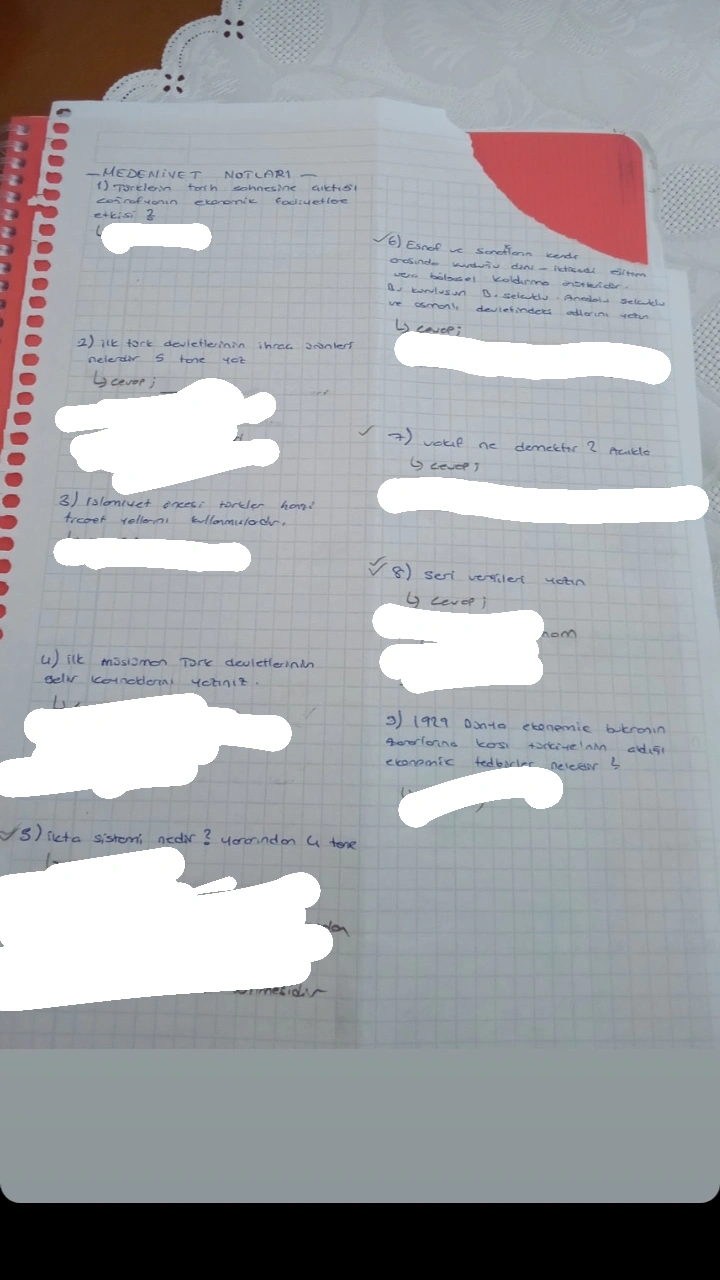 - MEDENİYET NOTLARI -
1) Türklerin tarih sahnesine çıktığı
coğrafyanın ekonomik faaliyetlere
etkisi ?
2) ilk türk devletlerinin ihraç ürünleri
nelerdir 5 tane yaz
↳ cevap ;
3) İslamiyet öncesi türkler hangi
ticaret yollarını kullanmışlardır.
4) ilk müslüman Türk devletlerinin
gelir kaynaklarını yazınız .
5) ikta sistemi nedir ? yararından 4 tane
6) Esnaf ve Sanatların kendi
arasında kurduğu dini - iktisadi eğitim
veya bölgesel kaldırma
Bu kuruluşun B. selçuklu Anadolu selçuklu
ve osmanlı devletindeki adlarını yazın
↳ cevap ;
7) vakıf ne demektir ? Açıkla
↳ cevap ;
8) seri vergileri yazın
↳ cevap ;
9) 1929 Dünya ekonomik buhranın
zararlarına karşı türkiye'nin aldığı
ekonomik tedbirler nelerdir ?